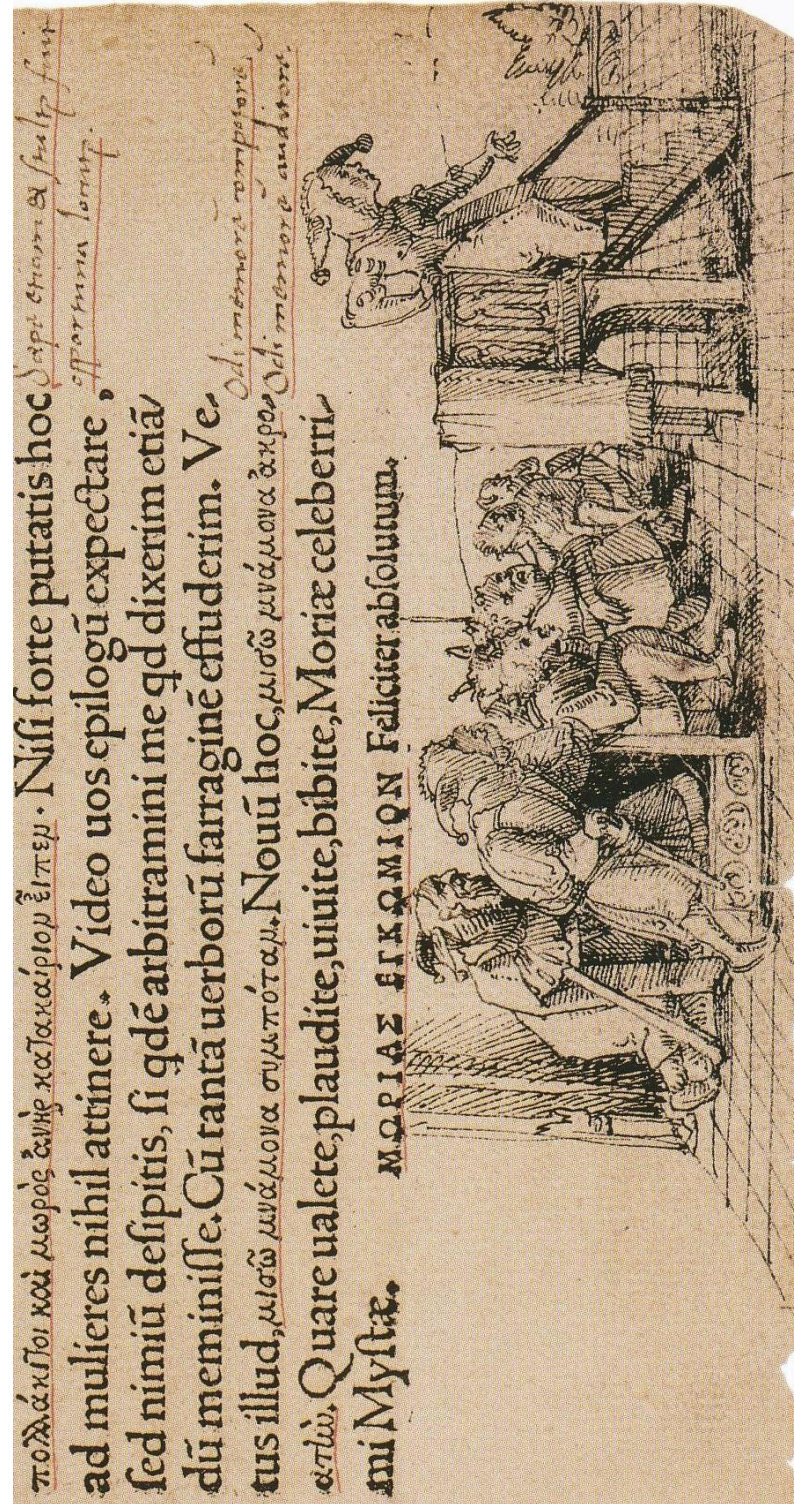 πολλάκι τοι καὶ μωρὸς ἀνὴρ κατακαίριον εἶπεν. Niſi forte putatis hoc
ad mulieres nihil attinere. Video uos epilogū expectare,
ſed nimiū deſipitis, ſi qdē arbitramini me qd dixerim etiā
dū meminiſſe. Cū tantā uerborū farraginē effuderim. Ve-
tus illud, μισῶ μνάμονα συμπόταν. Nouū hoc, μισῶ μνάμονα ἀκροα-
τὴν. Quare ualete, plaudite, uiuite, bibite, Moriæ celeberri-
mi Myſtæ.
ΜΩΡΙΑΣ ΕΓΚΩΜΙΟΝ Feliciter abſolutum.
Sæpe etiam
opportuna
Odi memorē compotorē
Odi memorē auditorē.